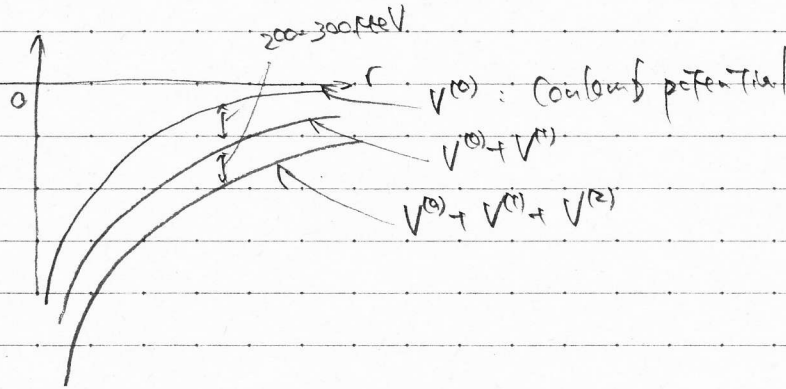 200~300 MeV
r
0
V^(0) : Coulomb potential
V^(0) + V^(1)
V^(0) + V^(1) + V^(2)